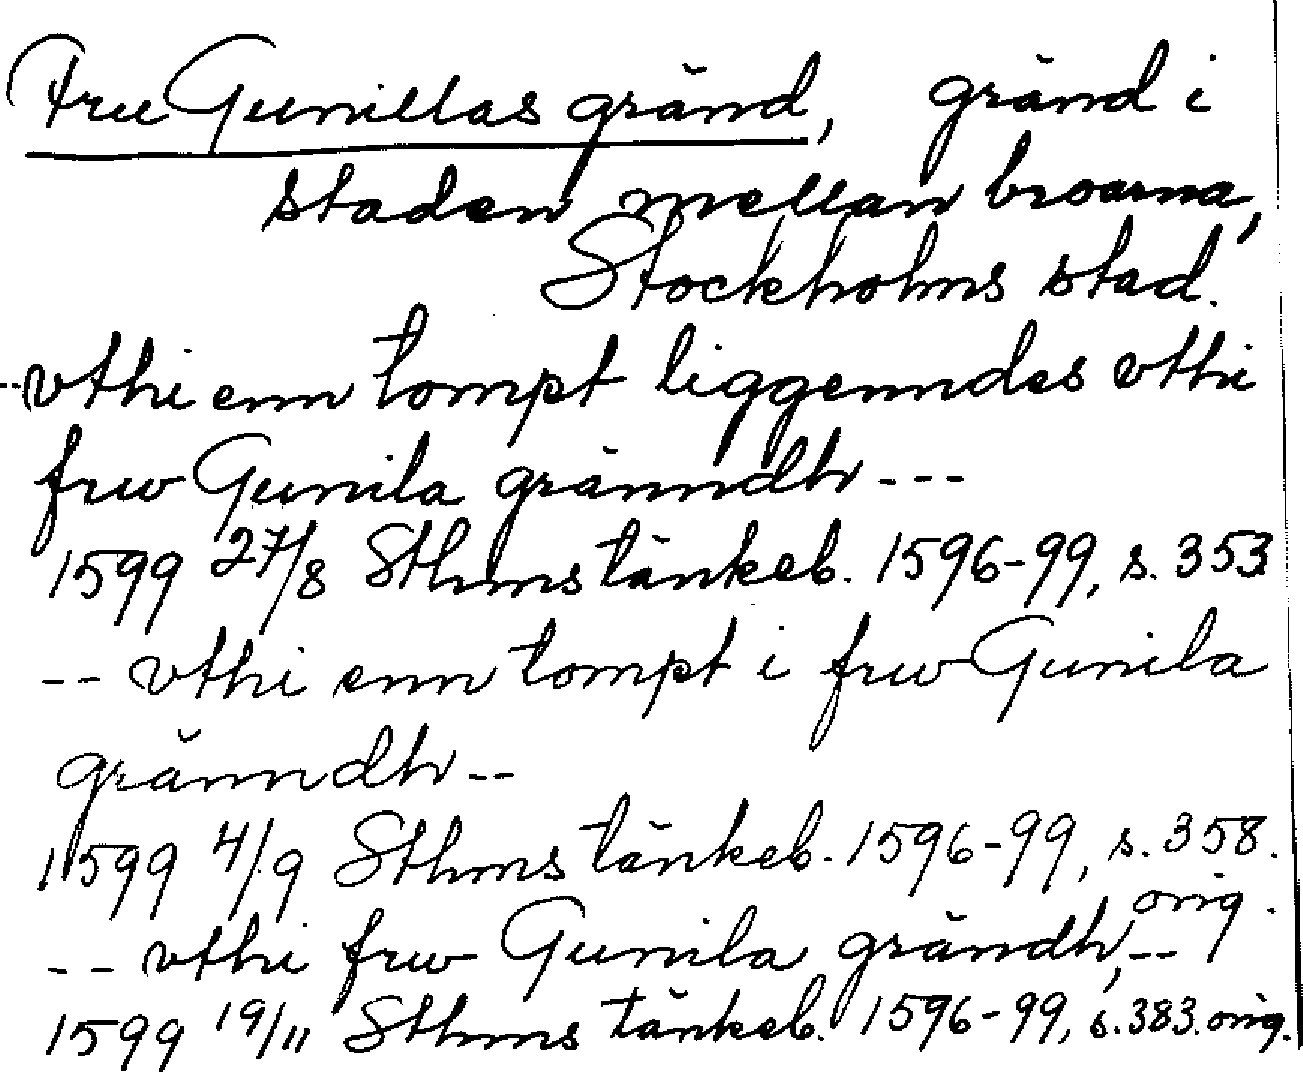 Fru Gunillas gränd, gränd i
staden mellan broarna,
Stockholms stad.
--vthi enn tompt liggenndes vthi
frw Gunila gränndh ---
1599 27/8 Sthms tänkeb. 1596-99, s. 353
-- vthi enn tompt i frw Gunila
gränndh --
1599 4/9 Sthms tänkeb. 1596-99, s. 358.
orig.
-- vthi frw Gunila grändh, --
1599 19/11 Sthms tänkeb. 1596-99, s. 383. orig.